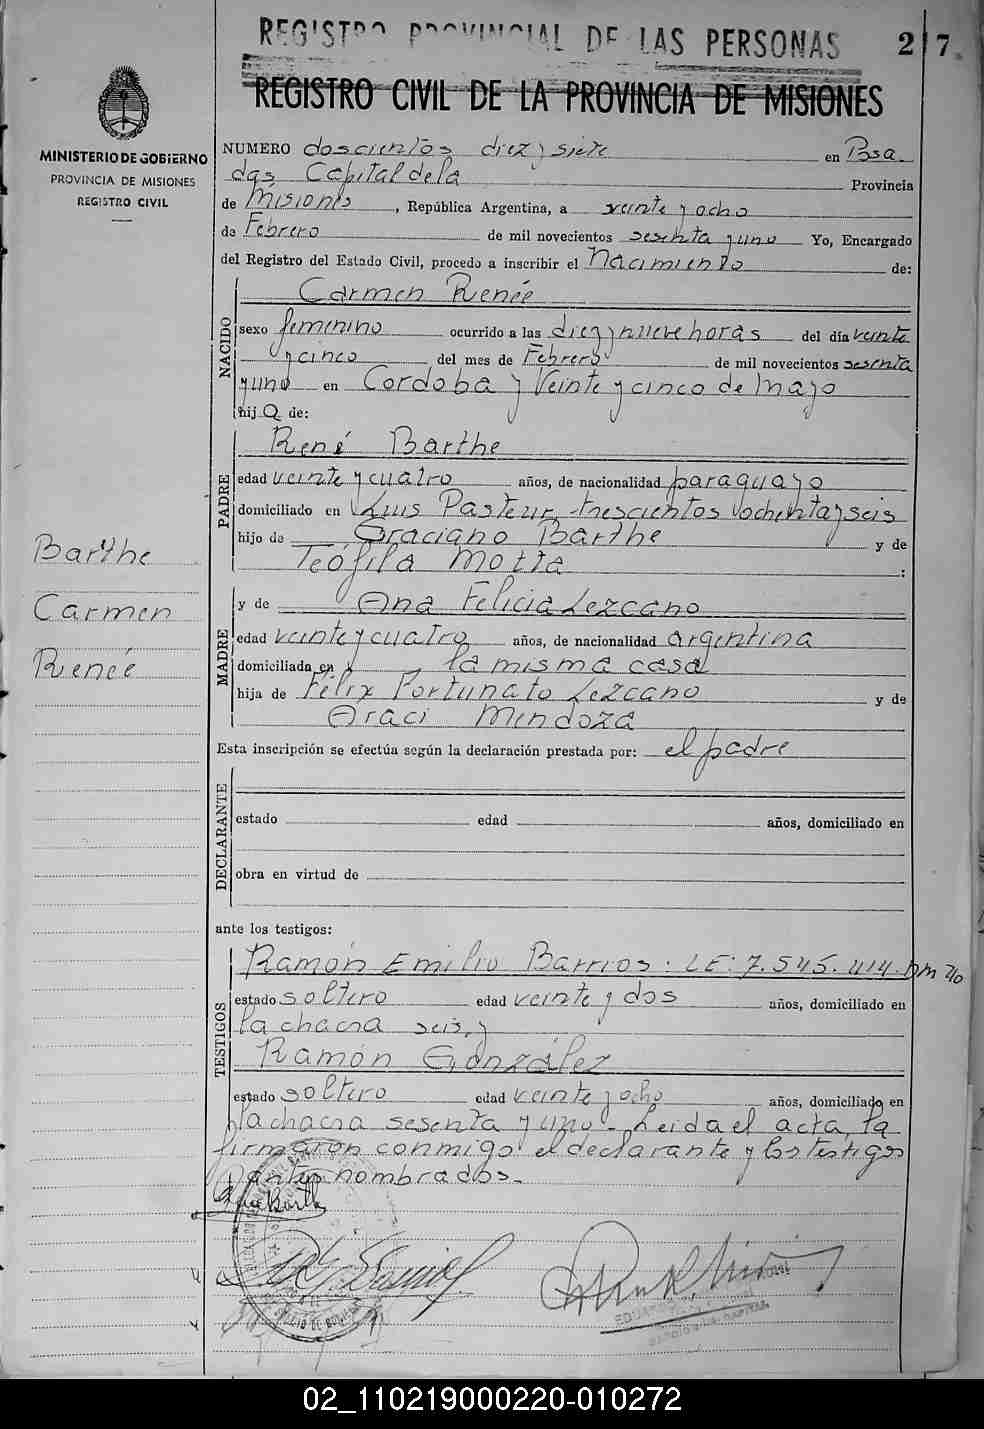 REGISTRO PROVINCIAL DE LAS PERSONAS
217
REGISTRO CIVIL DE LA PROVINCIA DE MISIONES
MINISTERIO DE GOBIERNO
PROVINCIA DE MISIONES
REGISTRO CIVIL
NUMERO doscientos diez y siete en Posa
das Capital de la Provincia
de Misiones, República Argentina, a veinte y ocho
de Febrero de mil novecientos sesenta y uno Yo, Encargado
del Registro del Estado Civil, procedo a inscribir el Nacimiento de:
NACIDO
Carmen Renée
sexo femenino ocurrido a las diez y nueve horas del día veinte
y cinco del mes de Febrero de mil novecientos sesenta
y uno en Cordoba y Veinte y cinco de Mayo
hij a de:
PADRE
René Barthe
edad veinte y cuatro años, de nacionalidad paraguayo
domiciliado en Luis Pasteur trescientos ochenta y seis
hijo de Graciano Barthe y de
Teófila Motta :
Barthe
Carmen
Renée
MADRE
y de Ana Felicia Lezcano
edad veinte y cuatro años, de nacionalidad argentina
domiciliada en la misma casa
hija de Félix Fortunato Lezcano y de
Araci Mendoza
Esta inscripción se efectúa según la declaración prestada por: el padre
DECLARANTE
estado edad años, domiciliado en
obra en virtud de
ante los testigos:
TESTIGOS
Ramón Emilio Barrios. LE: 7.545.414. DM 70
estado soltero edad veinte y dos años, domiciliado en
la chacra seis, y
Ramón González
estado soltero edad veinte y ocho años, domiciliado en
la chacra sesenta y uno - Leida el acta, la
firmaron conmigo el declarante y los testigos
antes nombrados.-
René Barthe
02_110219000220-010272